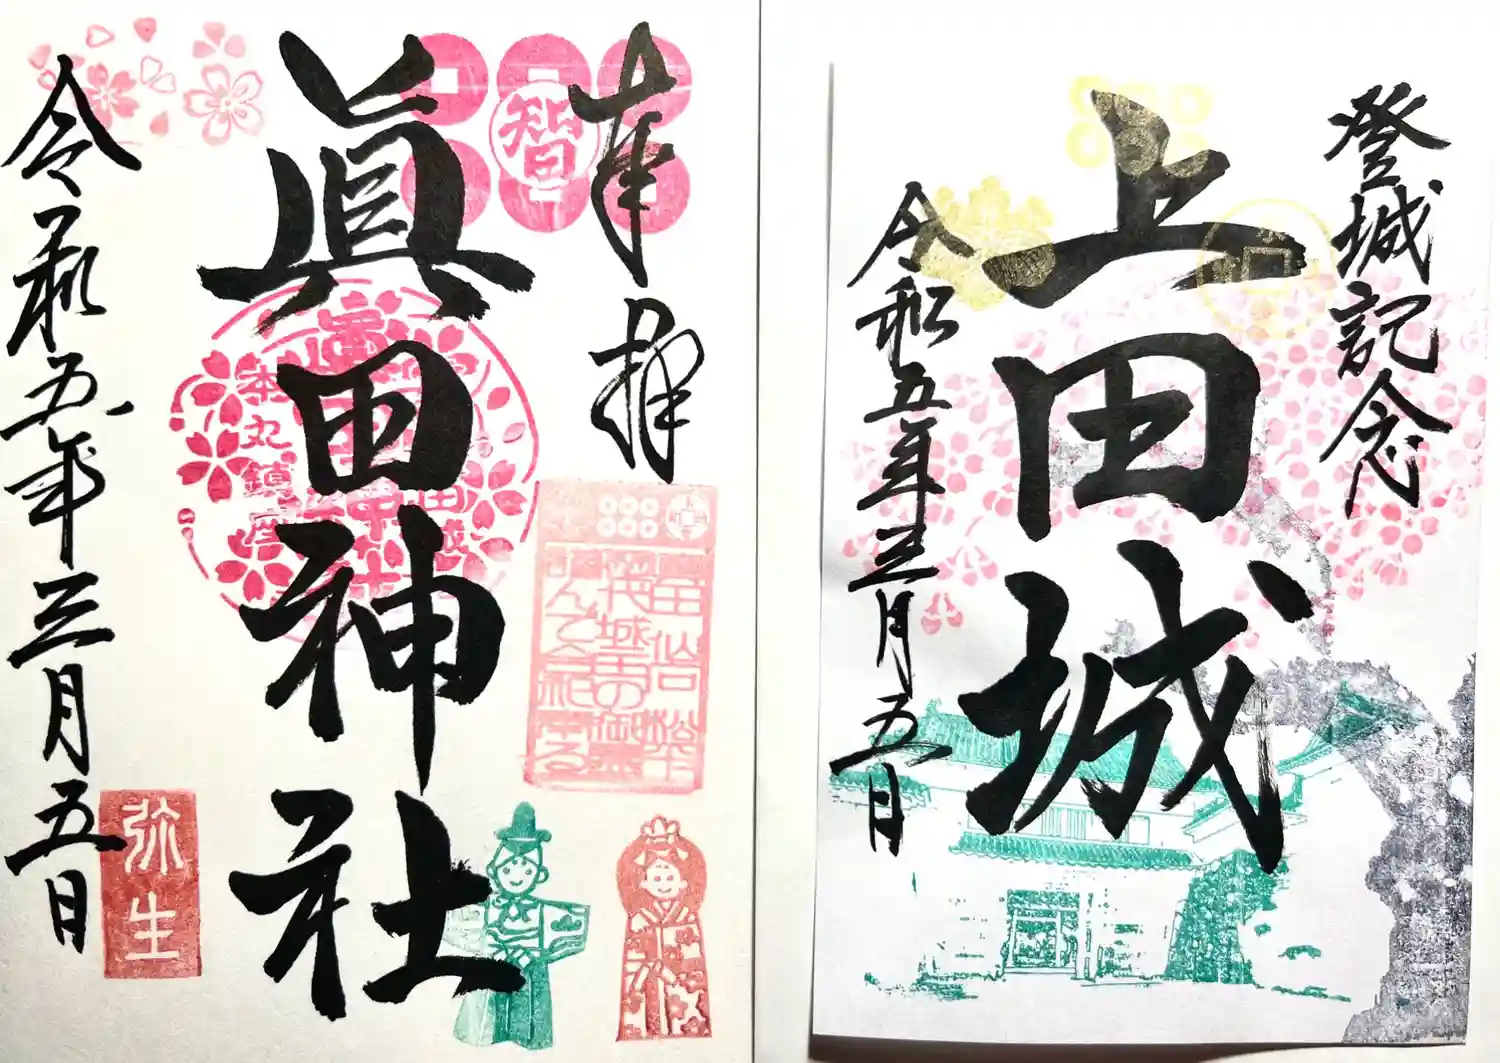 奉拝
智
眞田神社
本丸鎮座
令和五年三月五日
弥生
登城記念
上田城
令和五年三月五日